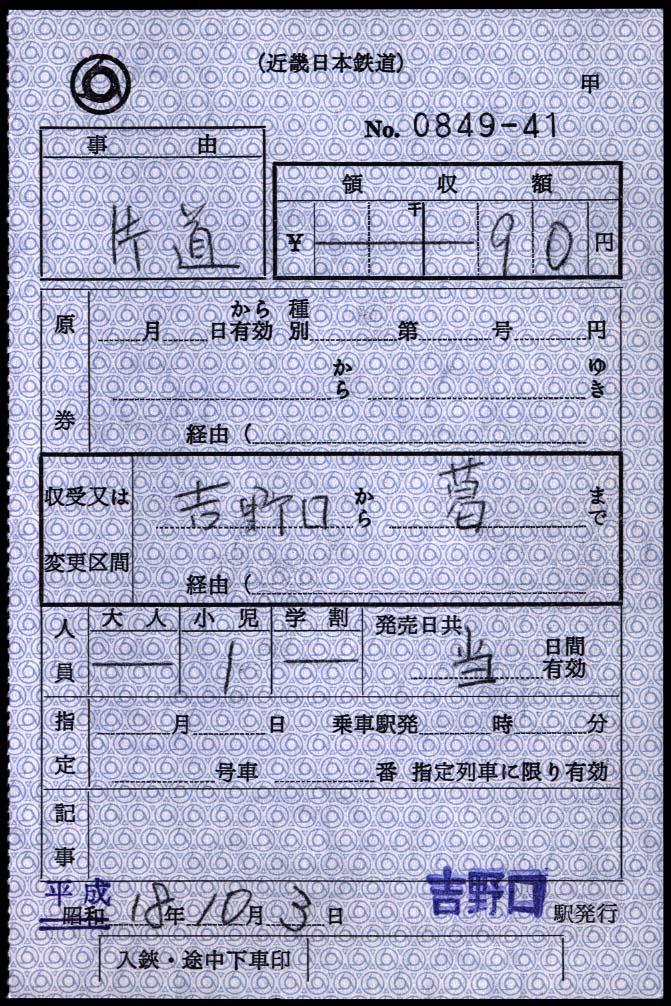 (近畿日本鉄道)
甲
No. 0849-41
事由
片道
領収額
千
¥ 90 円
原券
月 日から有効 種別 第 号 円
から ゆき
経由(
収受又は変更区間
吉野口 から 葛 まで
経由(
人員
大人 小児 学割
— 1 —
発売日共 当 日間有効
指定
月 日 乗車駅発 時 分
号車 番 指定列車に限り有効
記事
平成
昭和 18年10月3日 吉野口 駅発行
入鋏・途中下車印